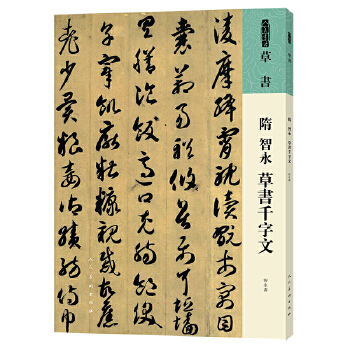 凌摩絳霄耽讀翫市寓目
囊箱易輶攸畏屬耳垣牆
具膳飡飯適口充腸
烹宰飢厭糟糠親戚故舊
老少異糧妾御績紡侍巾
草書
隋 智永 草書千字文
隋 智永 草書千字文